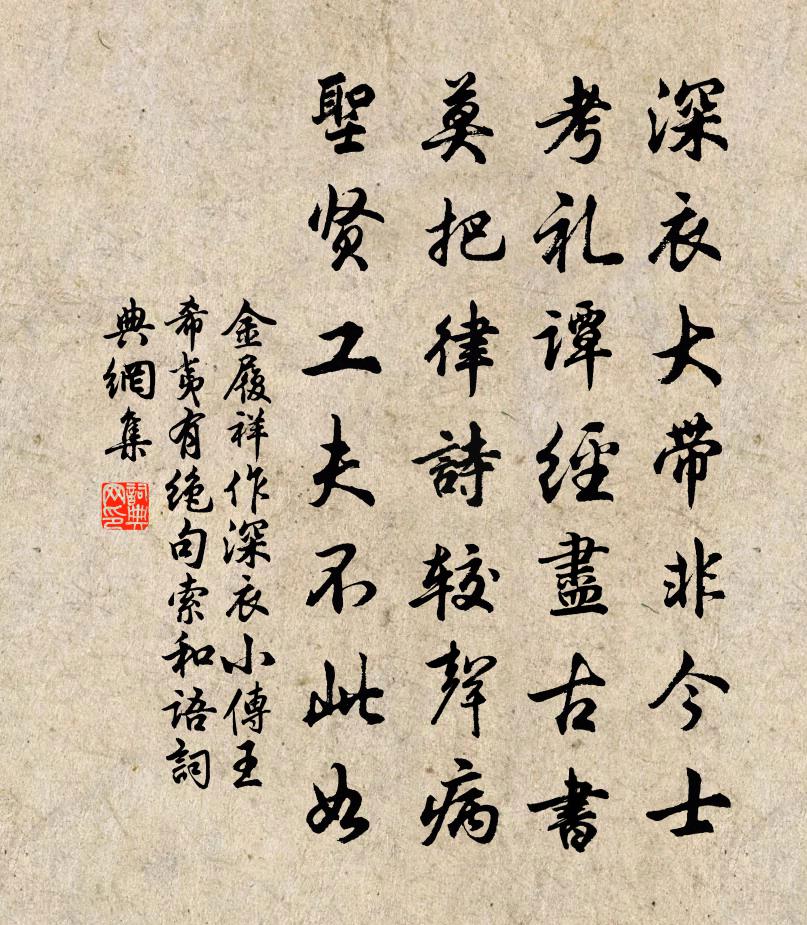 深衣大带非今士
考礼谭經盡古書
莫把律詩较聲病
聖贤工夫不此如
金履祥作深衣小傳王
希夷有绝句索和语詞
典網集
詞典
网印